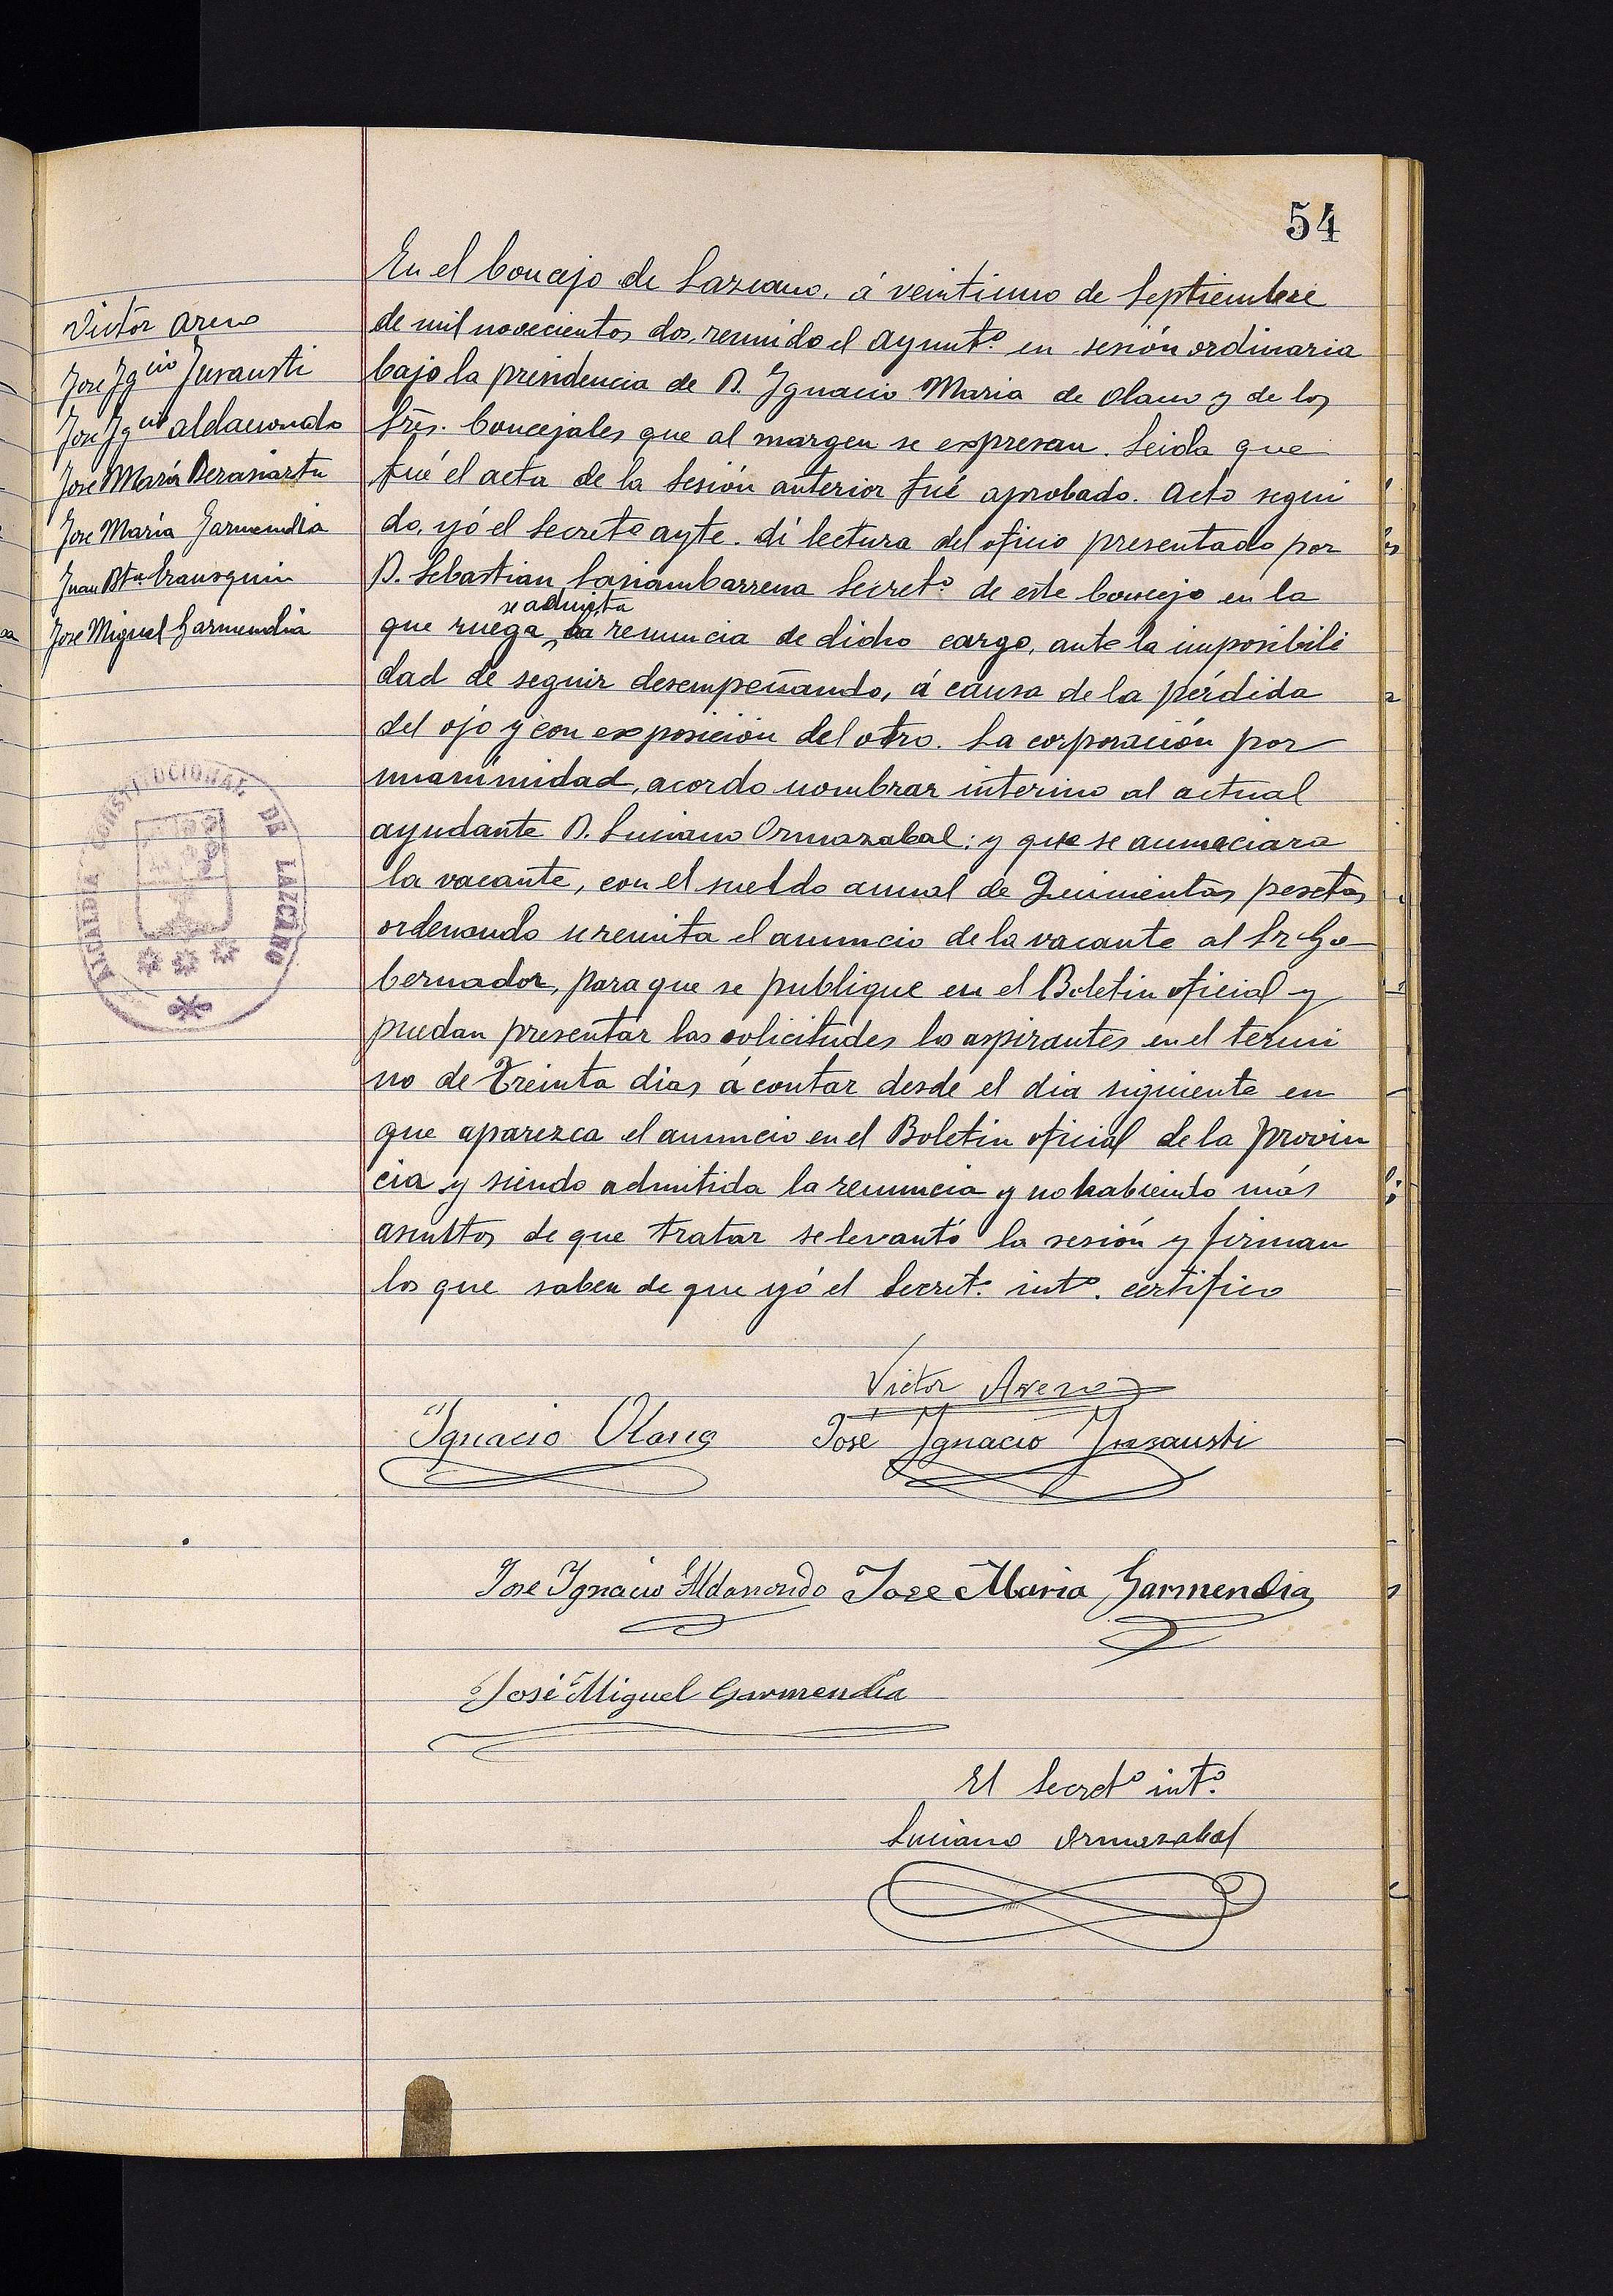 54
En el Concejo de Lazcano, á veintiuno de Septiembre
de mil novecientos dos, reunido el Ayuntº en sesión ordinaria
bajo la presidencia de D. Ignacio Maria de Olano y de los
Sres. Concejales que al margen se expresan. Leida que
fué el acta de la sesión anterior fué aprobado. Acto segui
do, yó el Secretº ayte. dí lectura del oficio presentado por
D. Sebastian Sasiambarrena Secretº de este Concejo en la
se admita
que ruega la renuncia de dicho cargo, ante la imposibili
dad de seguir desempeñando, á causa de la pérdida
del ojo y con exposición del otro. La corporación por
unanimidad, acordo nombrar interino al actual
ayudante D. Luciano Ormazabal; y que se anunciara
la vacante, con el sueldo anual de Quinientas pesetas
ordenando se remita el anuncio de la vacante al Sr Go
bernador, para que se publique en el Boletin oficial y
puedan presentar las solicitudes los aspirantes en el termi
no de Treinta dias á contar desde el dia siguiente en
que aparezca el anuncio en el Boletin oficial de la Provin
cia y siendo admitida la renuncia y no habiendo más
asuntos de que tratar se levantó la sesión y firman
los que saben de que yó el Secretº intº. certifico
Victor Areno
Jose Jgcio Insausti
Jose Jgcio Aldanondo
Jose María Berasiartu
Jose Maria Garmendia
Juan Bta
Jose Miguel Garmendia
ALCALDIA CONSTITUCIONAL DE LAZCANO
Victor Areno
Ignacio Olano José Ignacio Insausti
Jose Ignacio Aldanondo Jose Maria Garmendia
José Miguel Garmendia
El Secretº intº
Luciano Ormazabal